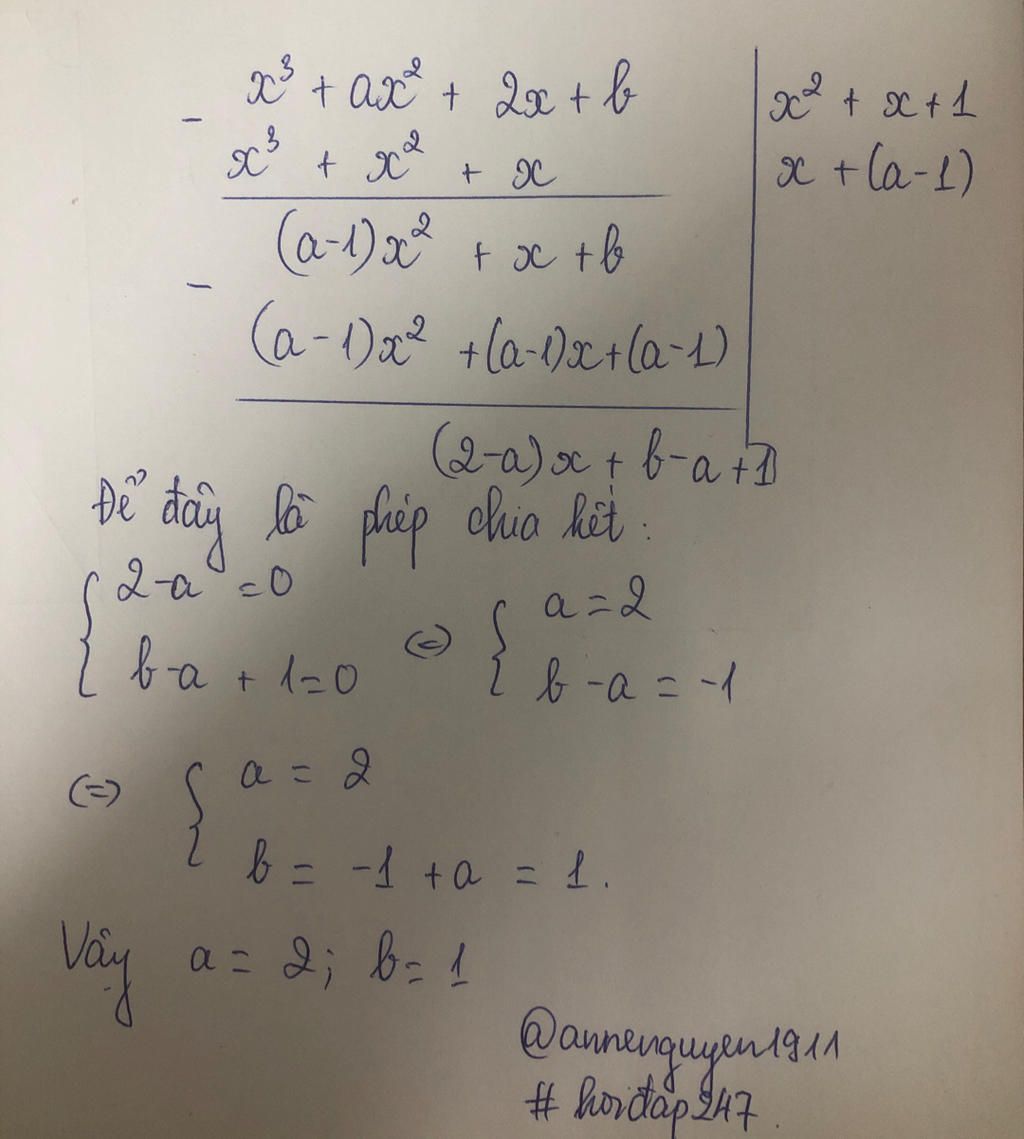 x³ + ax² + 2x + b | x² + x + 1
- x³ + x² + x | x + (a-1)
(a-1)x² + x + b
- (a-1)x² + (a-1)x + (a-1)
(2-a)x + b-a+1
Để đây là phép chia hết:
{ 2-a = 0
b-a + 1 = 0 (=) { a = 2
b - a = -1
(=) { a = 2
b = -1 + a = 1.
Vậy a = 2; b = 1
@annenguyen1911
# hoiđáp247.